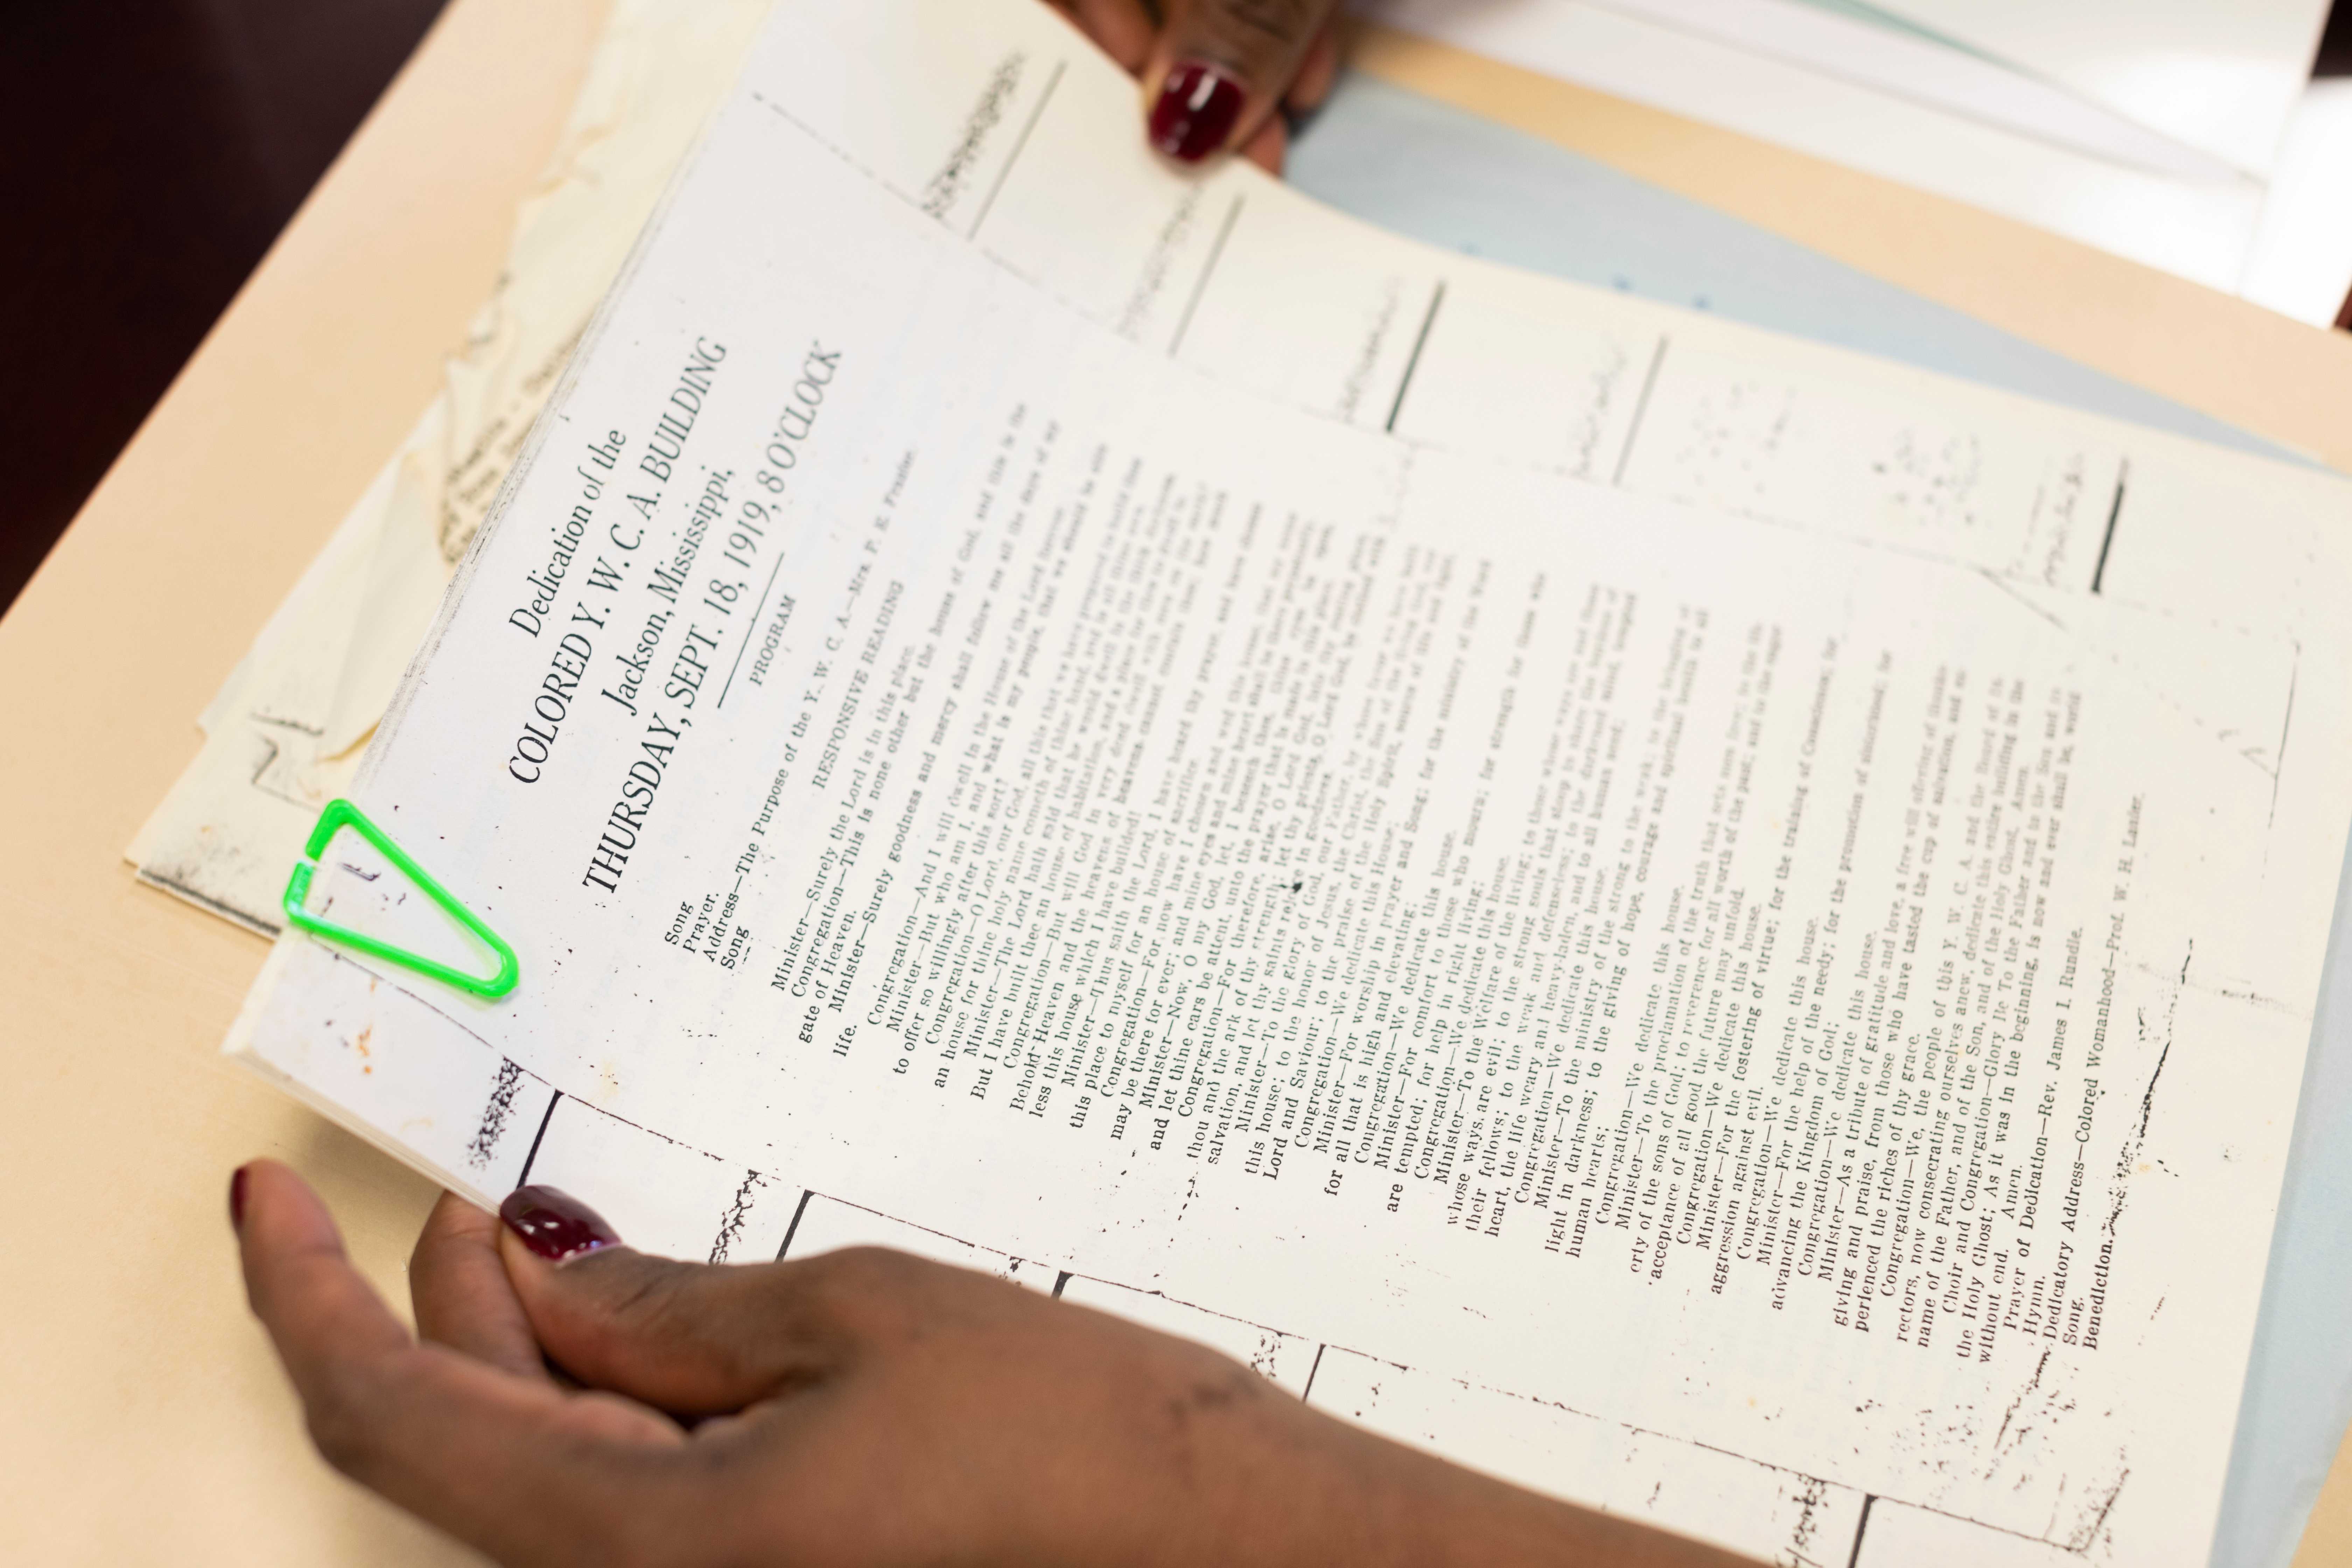 Dedication of the
COLORED Y. W. C. A. BUILDING
Jackson, Mississippi,
THURSDAY, SEPT. 18, 1919, 8 O'CLOCK
PROGRAM
Song
Prayer.
Address—The Purpose of the Y. W. C. A.—Mrs. P. E. Frazier.
Song
RESPONSIVE READING
Minister—Surely the Lord is in this place.
Congregation—This is none other but the house of God, and this is the
gate of Heaven.
Minister—Surely goodness and mercy shall follow me all the days of my
life.
Congregation—And I will dwell in the House of the Lord forever.
Minister—But who am I, and what is my people, that we should be able
to offer so willingly after this sort?
Congregation—O Lord, our God, all this that we have prepared to build thee
an house for thine holy name cometh of thine hand, and is all thine own.
Minister—The Lord hath said that he would dwell in the thick darkness.
But I have built thee an house of habitation, and a place for thee to dwell in
Congregation—But will God in very deed dwell with men on the
Behold Heaven and the heavens of heavens cannot contain thee; how much
less this house which I have builded!
Minister—Thus saith the Lord, I have heard thy prayer, and have chosen
this place to myself for an house of sacrifice.
Congregation—For now have I chosen and this house, that my name
may be there for ever; and mine eyes and mine heart shall be there perpetually.
Minister—Now, O my God, let, I beseech thee, thine eyes be open,
and let thine ears be attent, unto the prayer that is made in this place.
Congregation—For therefore, arise, O Lord God, into thy resting place,
thou and the ark of thy strength; let thy priests, O Lord God, be clothed with
salvation, and let thy saints rejoice in goodness.
Minister—To the glory of God, our Father, by whose favor we have built
this house; to the honor of Jesus, the Christ, the Son of the living God, our
Lord and Saviour; to the praise of the Holy Spirit, source of life and light,
Congregation—We dedicate this House;
Minister—For worship in prayer and Song; for the ministry of the Word
for all that is high and elevating;
Congregation—We dedicate this house.
Minister—For comfort to those who mourn; for strength for those who
are tempted; for help in right living;
Congregation—We dedicate this house.
Minister—To the Welfare of the living; to those whose ways are
whose ways are evil; to the strong souls that stoop to share the burdens of
their fellows; to the weak and defenseless; to the darkened mind,
heart, the life weary and heavy-laden, and to all human need;
Congregation—We dedicate this house.
Minister—To the ministry of the strong to the weak; to the bringing of
light in darkness; to the giving of hope, courage and spiritual health to all
human hearts;
Congregation—We dedicate this house.
Minister—To the proclamation of the truth that sets men free; to the lib
erty of the sons of God; to reverence for all worth of the past; and to the eager
acceptance of all good the future may unfold.
Congregation—We dedicate this house.
Minister—For the fostering of virtue; for the training of Conscience; for
aggression against evil.
Congregation—We dedicate this house.
Minister—For the help of the needy; for the promotion of sisterhood; for
advancing the Kingdom of God;
Congregation—We dedicate this house.
Minister—As a tribute of gratitude and love, a free will offering of thanks
giving and praise, from those who have tasted the cup of salvation, and ex
perienced the riches of thy grace.
Congregation—We, the people of this Y. W. C. A. and the Board of Di
rectors, now consecrating ourselves anew, dedicate this entire building in the
name of the Father, and of the Son, and of the Holy Ghost, Amen.
Choir and Congregation—Glory Be To the Father and to the Son and to
the Holy Ghost; As it was in the beginning, is now and ever shall be, world
without end. Amen.
Prayer of Dedication—Rev. James I. Rundle.
Hymn.
Dedicatory Address—Colored Womanhood—Prof. W. H. Lanier.
Song.
Benediction.